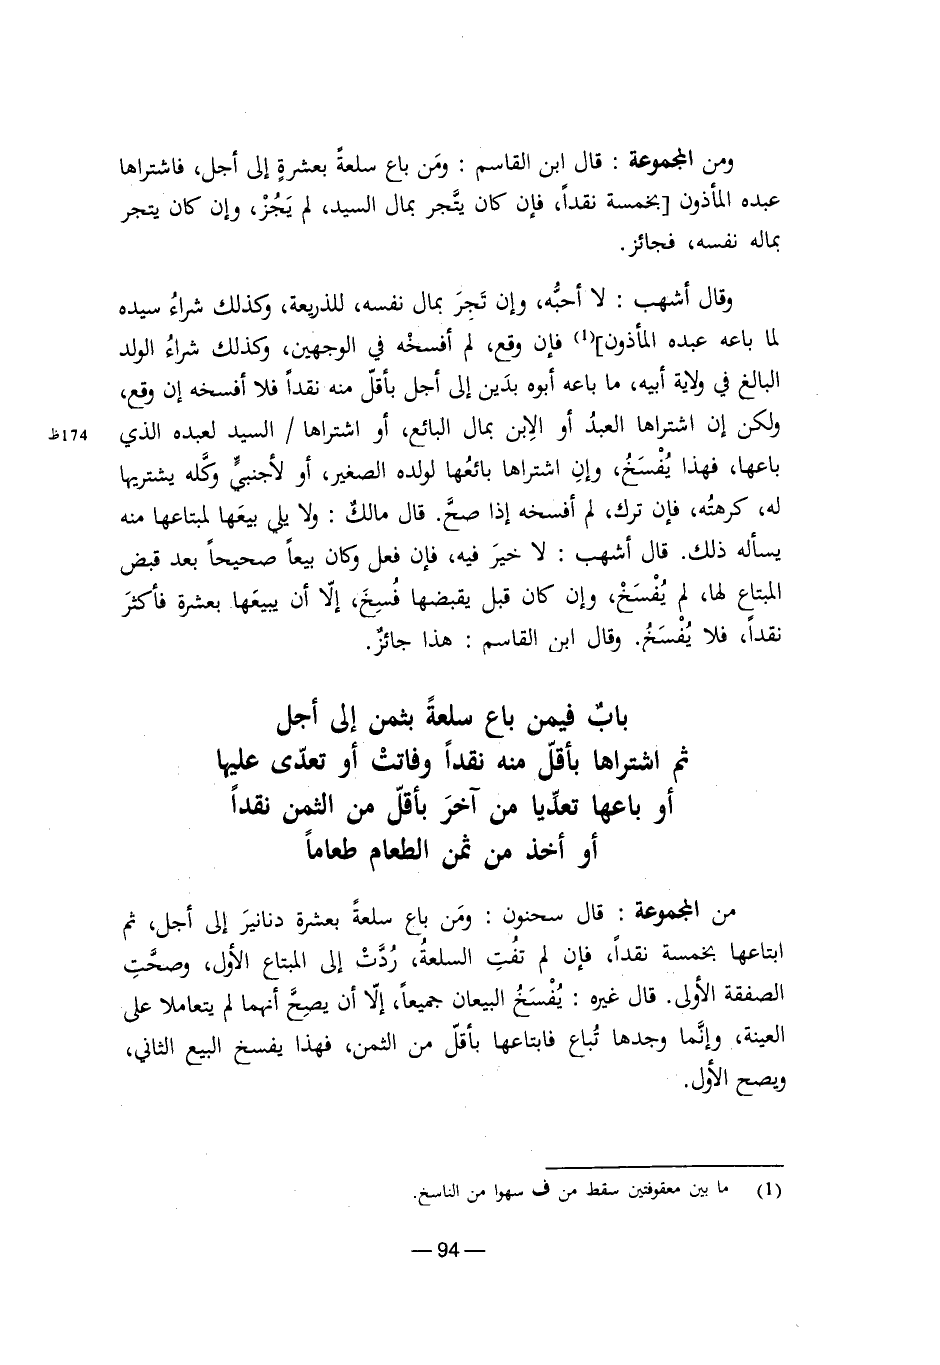 ومن المجموعة : قال ابن القاسم : ومَن باع سلعةً بعشرةٍ إلى أجل، فاشتراها
عبده المأذون [بخمسة نقداً، فإن كان يتَّجر بمال السيد، لم يَجُزْ، وإن كان يتجر
بماله نفسه، فجائز.
وقال أشهب : لا أحبُّه، وإن تَجِرَ بمال نفسه، للذريعة، وكذلك شراءُ سيده
لما باعه عبده المأذون](1) فإن وقع، لم أفسخْه في الوجهين، وكذلك شراءُ الولد
البالغ في ولاية أبيه، ما باعه أبوه بدَين إلى أجل بأقلّ منه نقداً فلا أفسخه إن وقع،
ولكن إن اشتراها العبدُ أو الِابن بمال البائع، أو اشتراها / السيد لعبده الذي
174ظ
باعها، فهذا يُفْسَخُ، وإنِ اشتراها بائعُها لولده الصغير، أو لأجنبيٍّ وكَّله يشتريها
له، كرهتُه، فإن ترك، لم أفسخه إذا صحَّ. قال مالكٌ : ولا يلي بيعَها لمبتاعها منه
يسأله ذلك. قال أشهب : لا خيرَ فيه، فإن فعل وكان بيعاً صحيحاً بعد قبض
المبتاع لها، لم يُفْسَخْ، وإن كان قبل يقبضها فُسِخَ، إلّا أن يبيعَها بعشرة فأكثرَ
نقداً، فلا يُفْسَخُ. وقال ابن القاسم : هذا جائزٌ.
بابٌ فيمن باع سلعةً بثمن إلى أجل
ثم اشتراها بأقلّ منه نقداً وفاتتْ أو تعدّى عليها
أو باعها تعدِّيا من آخرَ بأقلّ من الثمن نقداً
أو أخذ من ثمن الطعام طعاماً
من المجموعة : قال سحنون : ومَن باع سلعةً بعشرة دنانيرَ إلى أجل، ثم
ابتاعها بخمسة نقداً، فإن لم تفُتِ السلعةُ، رُدَّتْ إلى المبتاع الأول، وصحَّتِ
الصفقة الأولى. قال غيره : يُفْسَخُ البيعان جميعاً، إلّا أن يصِحَّ أنهما لم يتعاملا على
العينة، وإنَّما وجدها تُباع فابتاعها بأقلّ من الثمن، فهذا يفسخ البيع الثاني،
ويصح الأول.
(1) ما بين معقوفتين سقط من ف سهوا من الناسخ.
— 94 —